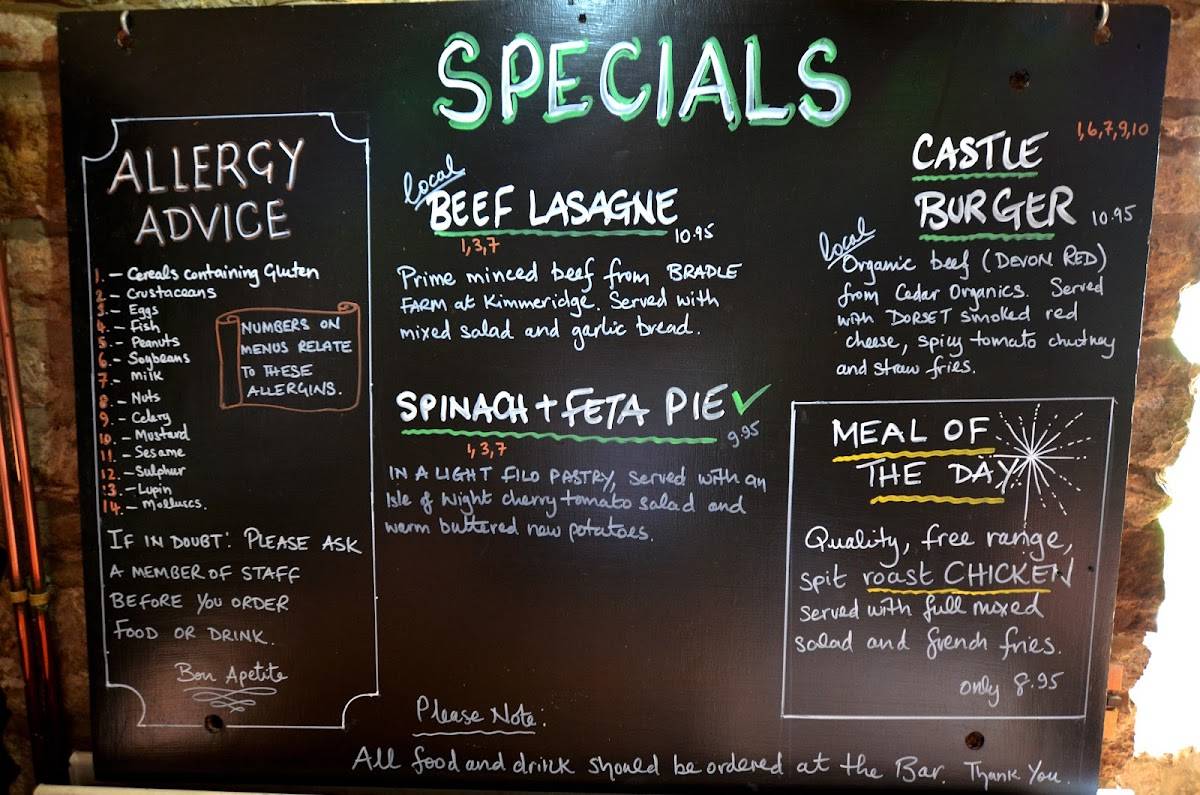 SPECIALS
ALLERGY
ADVICE
1. - Cereals containing Gluten
2 - Crustaceans
3. - Eggs
4. - Fish
5. - Peanuts
6. - Soybeans
7. - Milk
8. - Nuts
9. - Celery
10. - Mustard
11. - Sesame
12. - Sulphur
13. - Lupin
14. - Molluscs.
NUMBERS ON
MENUS RELATE
TO THESE
ALLERGINS.
IF IN DOUBT: PLEASE ASK
A MEMBER OF STAFF
BEFORE YOU ORDER
FOOD OR DRINK.
Bon Apetite
local
BEEF LASAGNE
1,3,7
10.95
Prime minced beef from BRADLE
FARM at Kimmeridge. Served with
mixed salad and garlic bread.
SPINACH + FETA PIE ✓
1,3,7
9.95
IN A LIGHT FILO PASTRY, served with an
Isle of Wight cherry tomato salad and
warm buttered new potatoes.
CASTLE
1,6,7,9,10
BURGER 10.95
local
Organic beef (DEVON RED)
from Cedar Organics. Served
with DORSET smoked red
cheese, spicy tomato chutney
and straw fries.
MEAL OF
THE DAY
Quality, free range,
spit roast CHICKEN
served with full mixed
salad and french fries.
only 8.95
Please Note:
All food and drink should be ordered at the Bar. Thank You.